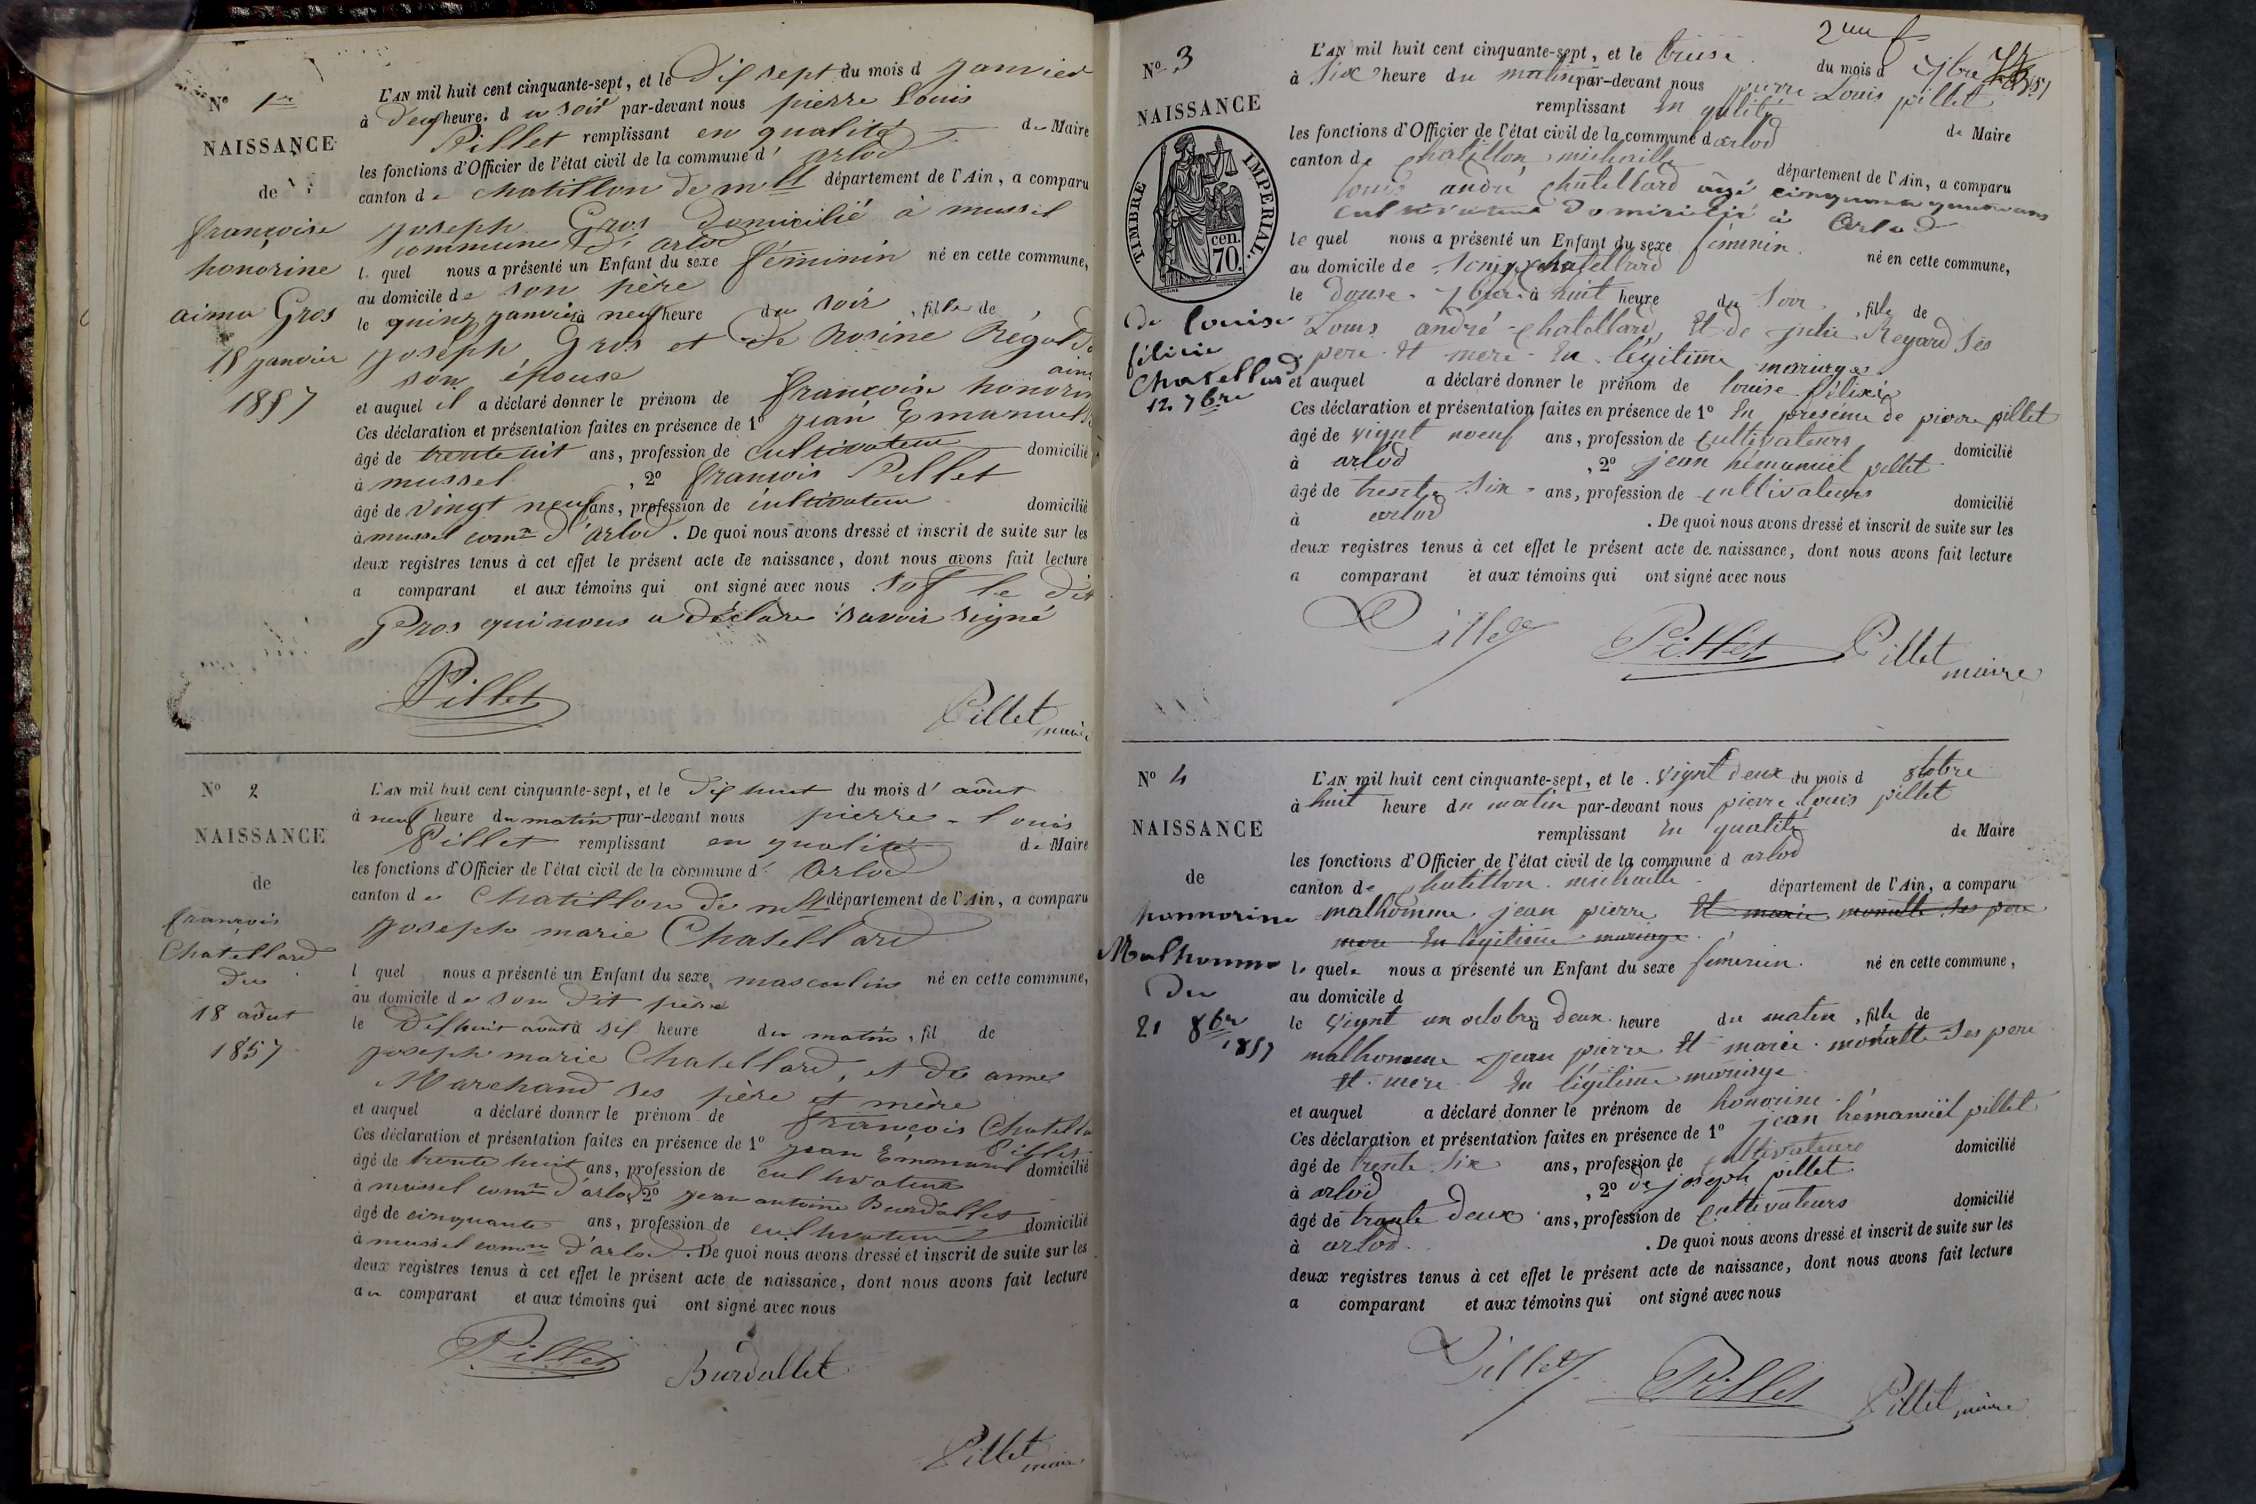 N° 1er
NAISSANCE
de
françoise
honorine
aima Gros
15 janvier
1857
L'AN mil huit cent cinquante-sept, et le dix sept du mois d janvier
à deux heure. du soir par-devant nous pierre Louis
Pillet remplissant en qualité de Maire
les fonctions d'Officier de l'état civil de la commune d' arlod
canton de chatillon de mll département de l'Ain, a comparu
joseph Gros domicilié à mussel
commune d' arlod
l quel nous a présenté un Enfant du sexe féminin né en cette commune,
au domicile de son père
le quinz janvier à neuf heure du soir, fille de
joseph Gros et de Rosine Régald
son épouse
et auquel il a déclaré donner le prénom de françoise honorin
Ces déclaration et présentation faites en présence de 1° jean Emanuel
âgé de trente uit ans, profession de cultivateur domicilié
à mussel, 2° françois Pillet
âgé de vingt neuf ans, profession de cultivateur domicilié
à mussel comne d'arlod. De quoi nous avons dressé et inscrit de suite sur les
deux registres tenus à cet effet le présent acte de naissance, dont nous avons fait lecture
a comparant et aux témoins qui ont signé avec nous sof le dit
Gros qui nous a déclare savoir signé
Pillet
Pillet maire
N° 2
NAISSANCE
de
françois
Chatellard
du
18 août
1857
L'AN mil huit cent cinquante-sept, et le dix huit du mois d' août
à neuf heure du matin par-devant nous pierre-Louis
Pillet remplissant en qualité de Maire
les fonctions d'Officier de l'état civil de la commune d' Arlod
canton de Chatillon de mll département de l'Ain, a comparu
joseph marie Chatellard
l quel nous a présenté un Enfant du sexe masculin né en cette commune,
au domicile de son dit père
le dixhuit août à six heure du matin, fil de
joseph marie Chatellard, et de anne
Marchand ses père et mère
et auquel a déclaré donner le prénom de françois Chatella
Ces déclaration et présentation faites en présence de 1° jean Emmanuel Pillet
âgé de trente huit ans, profession de cultivateur domicilié
à mussel comne d'arlod 2° jean antoine Burdallet
âgé de cinquante ans, profession de cultivateur domicilié
à mussel comne d'arlod. De quoi nous avons dressé et inscrit de suite sur les
deux registres tenus à cet effet le présent acte de naissance, dont nous avons fait lecture
au comparant et aux témoins qui ont signé avec nous
Pillet Burdallet
Pillet maire
N° 3
NAISSANCE
TIMBRE IMPERIAL
cen. 70.
de louise
félicie
Chatellard
12 7bre
L'AN mil huit cent cinquante-sept, et le treise du mois d 7bre
à six heure du matin par-devant nous pierre Louis pillet
remplissant en qulité de Maire
les fonctions d'Officier de l'état civil de la commune d arlod
canton de chatillon michaille département de l'Ain, a comparu
louis andré chatellard âgé cinquante
cultivateur domicilié à Arlod
le quel nous a présenté un Enfant du sexe féminin né en cette commune,
au domicile de chatellard
le douse 7bre à huit heure du Soir, fille de
Louis andré chatellard, Et de julie Regard Ses
pere Et mere En légitime mariage
et auquel a déclaré donner le prénom de louise félixé
Ces déclaration et présentation faites en présence de 1° En presence de pierre pillet
âgé de vignt noeuf ans, profession de Cultivateurs domicilié
à arlod, 2° jean hémanuël pillet
âgé de trente Six ans, profession de cultivateurs domicilié
à arlod. De quoi nous avons dressé et inscrit de suite sur les
deux registres tenus à cet effet le présent acte de naissance, dont nous avons fait lecture
a comparant et aux témoins qui ont signé avec nous
Pillet Pillet Pillet maire
N° 4
NAISSANCE
de
honnorine
Malhomme
Du
21 8bre
1857
L'AN mil huit cent cinquante-sept, et le vignt deux du mois d octobre
à huit heure du matin par-devant nous pierre Louis pillet
remplissant En qualité de Maire
les fonctions d'Officier de l'état civil de la commune d arlod
canton de Chatillon michaille département de l'Ain, a comparu
malhomme jean pierre Et marie monatte Ses pere
mere En légitime mariage
le quel nous a présenté un Enfant du sexe féminin né en cette commune,
au domicile d
le vignt un octobre à deux heure du matin, fille de
malhomme jean pierre Et marie monatte Ses pere
Et mere En légitime mariage
et auquel a déclaré donner le prénom de honorine
Ces déclaration et présentation faites en présence de 1° jean hémanuël pillet
âgé de trente Six ans, profession de cultivateurs domicilié
à arlod, 2° de joseph pillet
âgé de trante deux ans, profession de Cultivateurs domicilié
à arlod. De quoi nous avons dressé et inscrit de suite sur les
deux registres tenus à cet effet le présent acte de naissance, dont nous avons fait lecture
a comparant et aux témoins qui ont signé avec nous
Pillet Pillet Pillet maire